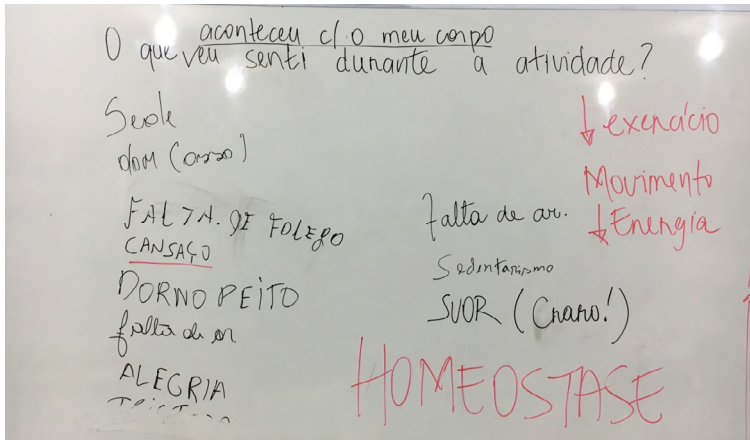 aconteceu c/ o meu corpo
O que eu senti durante a atividade?
Sede
dor (osso)
FALTA. DE FOLEGO
CANSAÇO
DOR NO PEITO
falta de ar
ALEGRIA
falta de ar.
Sedentarismo
SUOR (Claro!)
↓ exercício
Movimento
↓ Energia
HOMEOSTASE